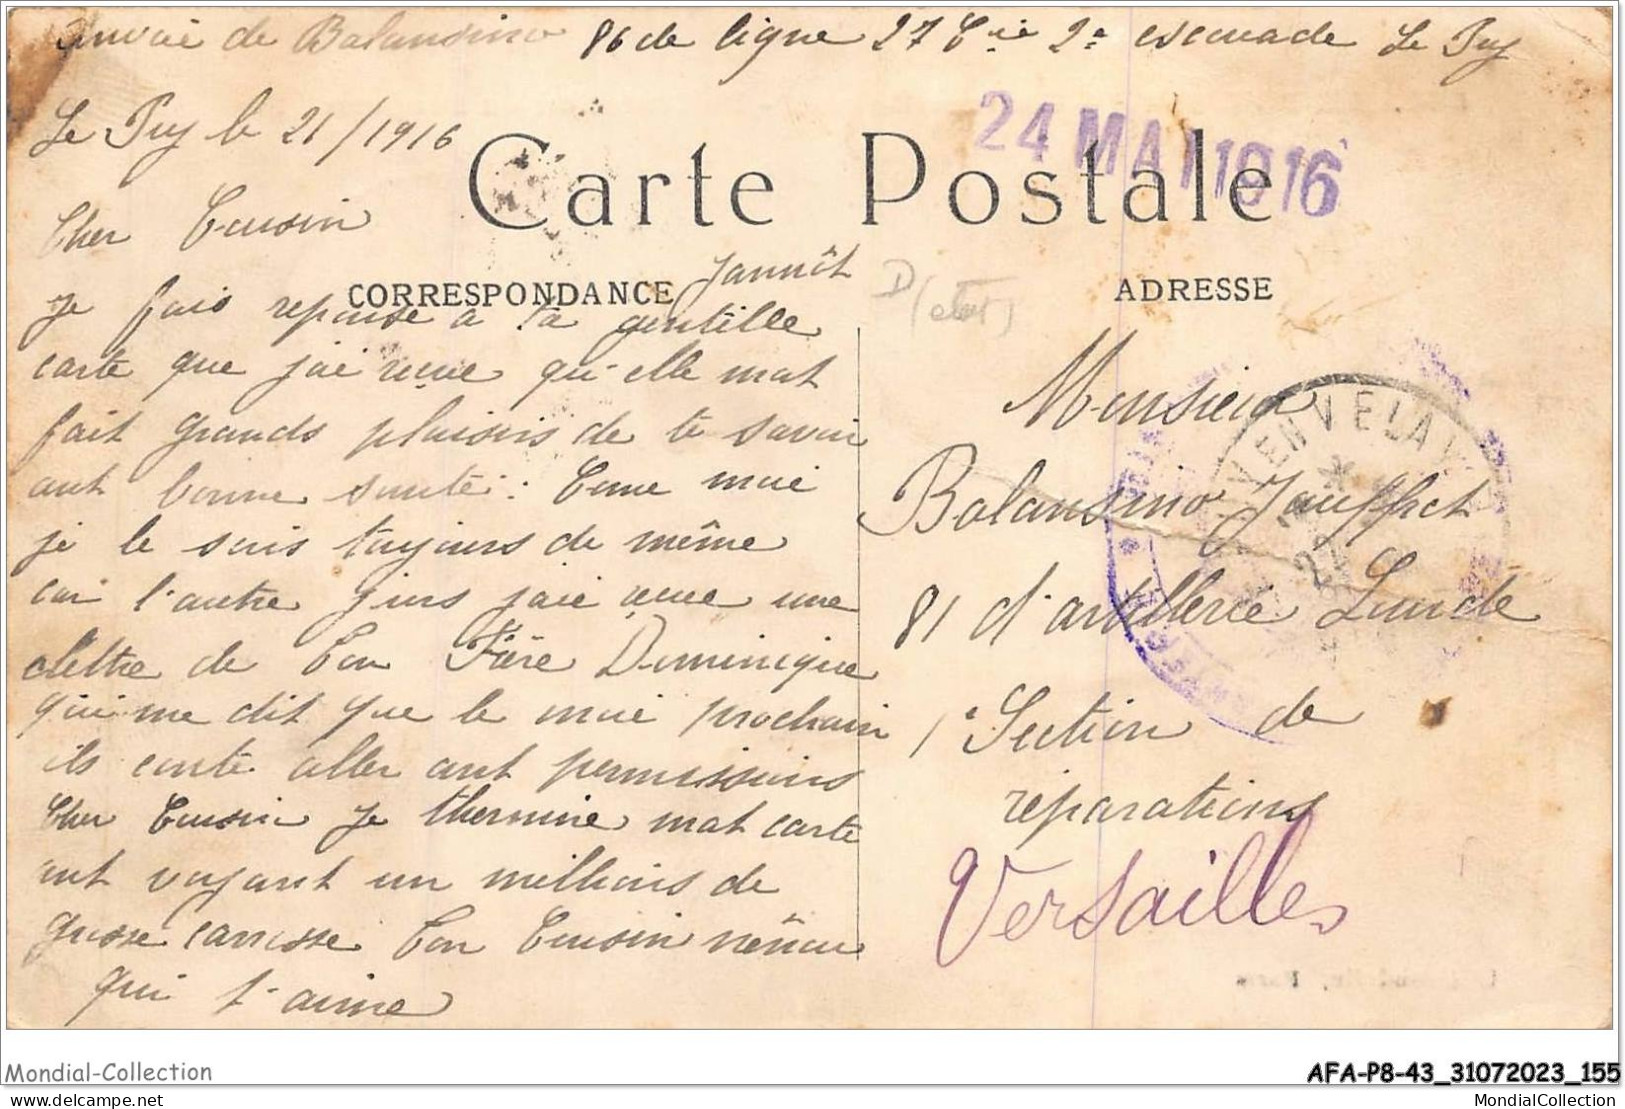 Envoie de Balansino 86 de ligne 27 Cie 2e escouade Le Puy
Le Puy le 21/1916
24 MAI 1916
Carte Postale
Cher Cousin
Jannôt
CORRESPONDANCE
ADRESSE
D (etat)
Je fais reponse a ta gentille
carte que jai reçue qu'elle mat
fait grands plaisirs de te savoir
ant bonne santé: Come moi
je le suis toujours de même
car l'autre jurs jaie reçue une
clettre de ton Fère Dominique
qui me dit que le moi prochain
ils conte aller ant permissions
Cher Cousin Je thermine mat carte
ant voyant un millions de
grosse carresse Ton Cousin
qui t'aime
Monsieur
Balansino Jauffret
81 d'artillerie Lourde
1e Section de
réparations
Versailles
Mondial-Collection
AFA-P8-43_31072023_155
delcampe.net
MondialCollection